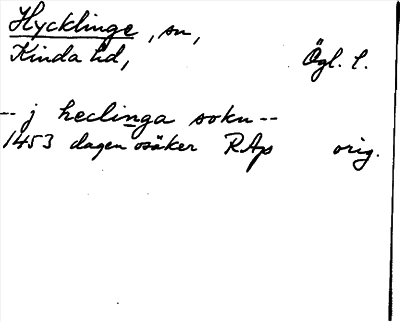 Hycklinge, sn,
Kinda hd, Ögl. l.
-- jheclinga sokn --
1453 dagen osäker RAp orig.